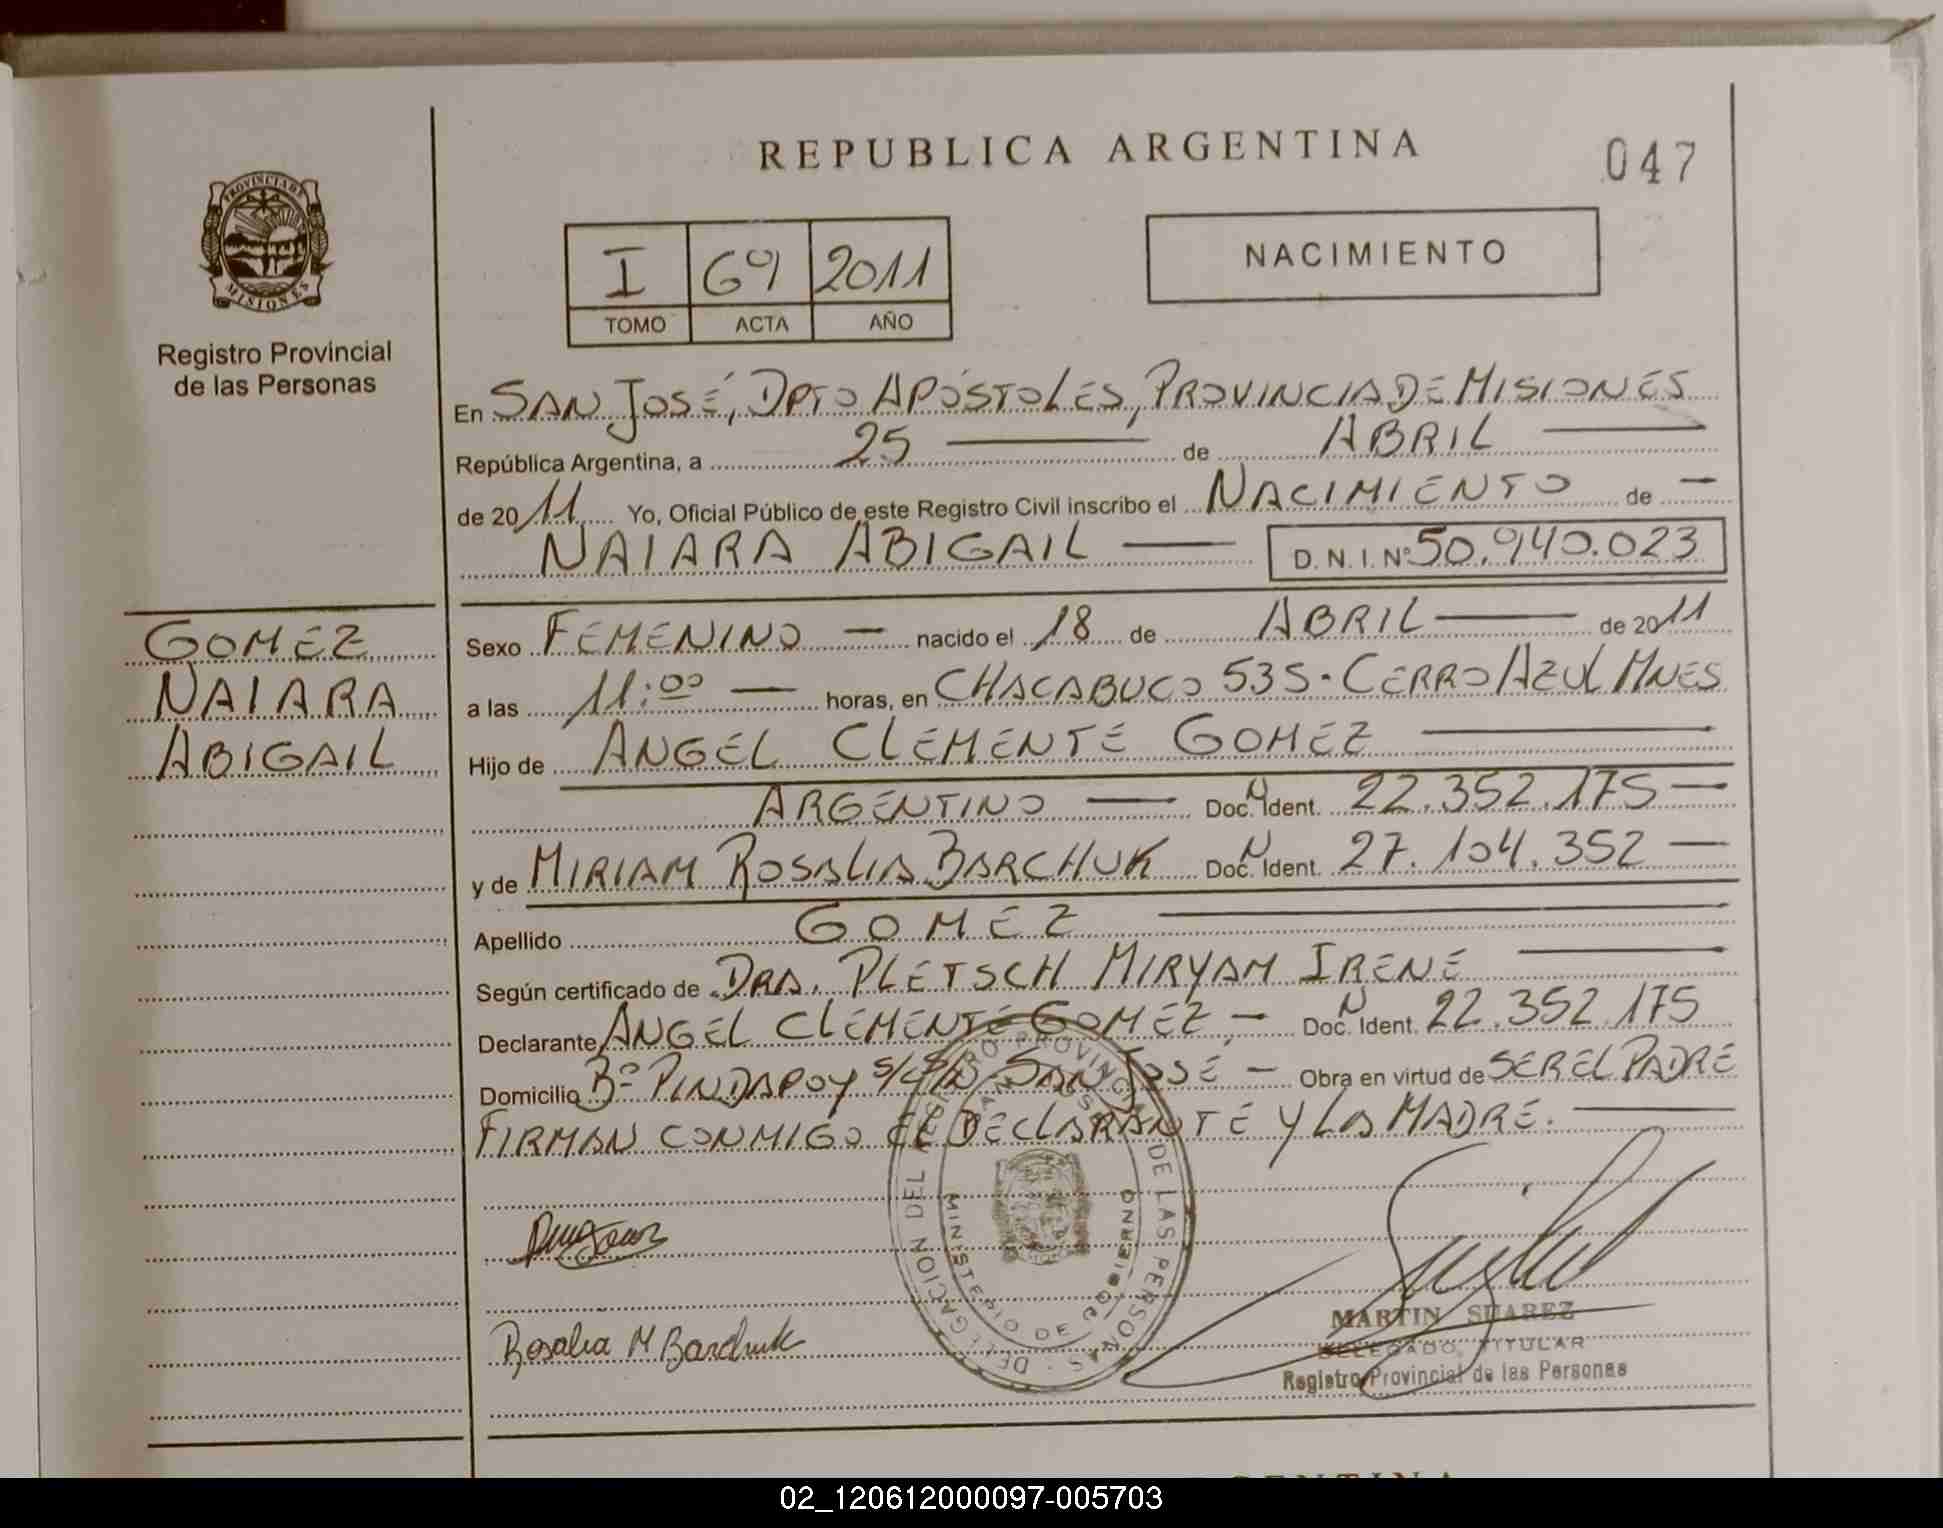 REPUBLICA ARGENTINA
047
PROVINCIA DE
MISIONES
Registro Provincial
de las Personas
I 69 2011
TOMO ACTA AÑO
NACIMIENTO
En SAN JOSÉ, DPTO APÓSTOLES, PROVINCIA DE MISIONES
República Argentina, a 25 de ABRIL
de 2011 Yo, Oficial Público de este Registro Civil inscribo el NACIMIENTO de
NAIARA ABIGAIL D.N.I. Nº 50.940.023
GOMEZ
NAIARA
ABIGAIL
Sexo FEMENINO nacido el 18 de ABRIL de 2011
a las 11:00 horas, en CHACABUCO 535 - CERRO AZUL MNES
Hijo de ANGEL CLEMENTE GOMEZ
ARGENTINO Doc. N Ident. 22.352.175
y de MIRIAM ROSALIA BARCHUK Doc. N Ident. 27.104.352
Apellido GOMEZ
Según certificado de DRA. PLETSCH MIRYAM IRENE
Declarante ANGEL CLEMENTE GOMEZ, Doc. N Ident. 22.352.175
Domicilio Bº PINDAPOY S/C S/N SAN JOSÉ Obra en virtud de SER EL PADRE
FIRMAN CONMIGO EL DECLARANTE Y LA MADRE.
DELEGACION DEL REGISTRO PROVINCIAL DE LAS PERSONAS
SAN JOSE
MINISTERIO DE GOBIERNO
Rosalia M Barchuk
MARTIN SUAREZ
DELEGADO TITULAR
Registro Provincial de las Personas
02_120612000097-005703